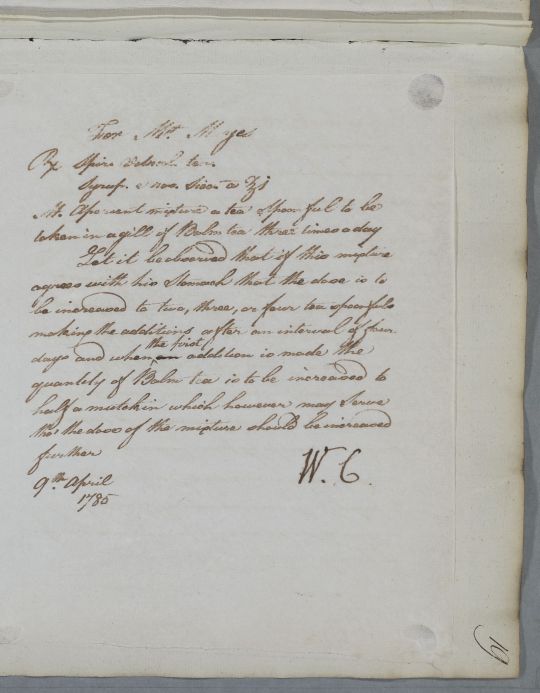 For Mr. M yes
Rx Spire
Syrup. e ʒj
M. Aperient mixture a tea spoonful to be
taken in a gill of Balm tea three times a day
Let it be observed that if this mixture
agrees with his Stomach that the dose is to
be increased to two, three, or four tea spoonfuls
making the additions after an interval of four
days and when the first an addition is made the
quantity of Balm tea is to be increased to
half a mutchkin which however may serve
tho' the dose of the mixture should be increased
further
W. C.
9th April
1785
19